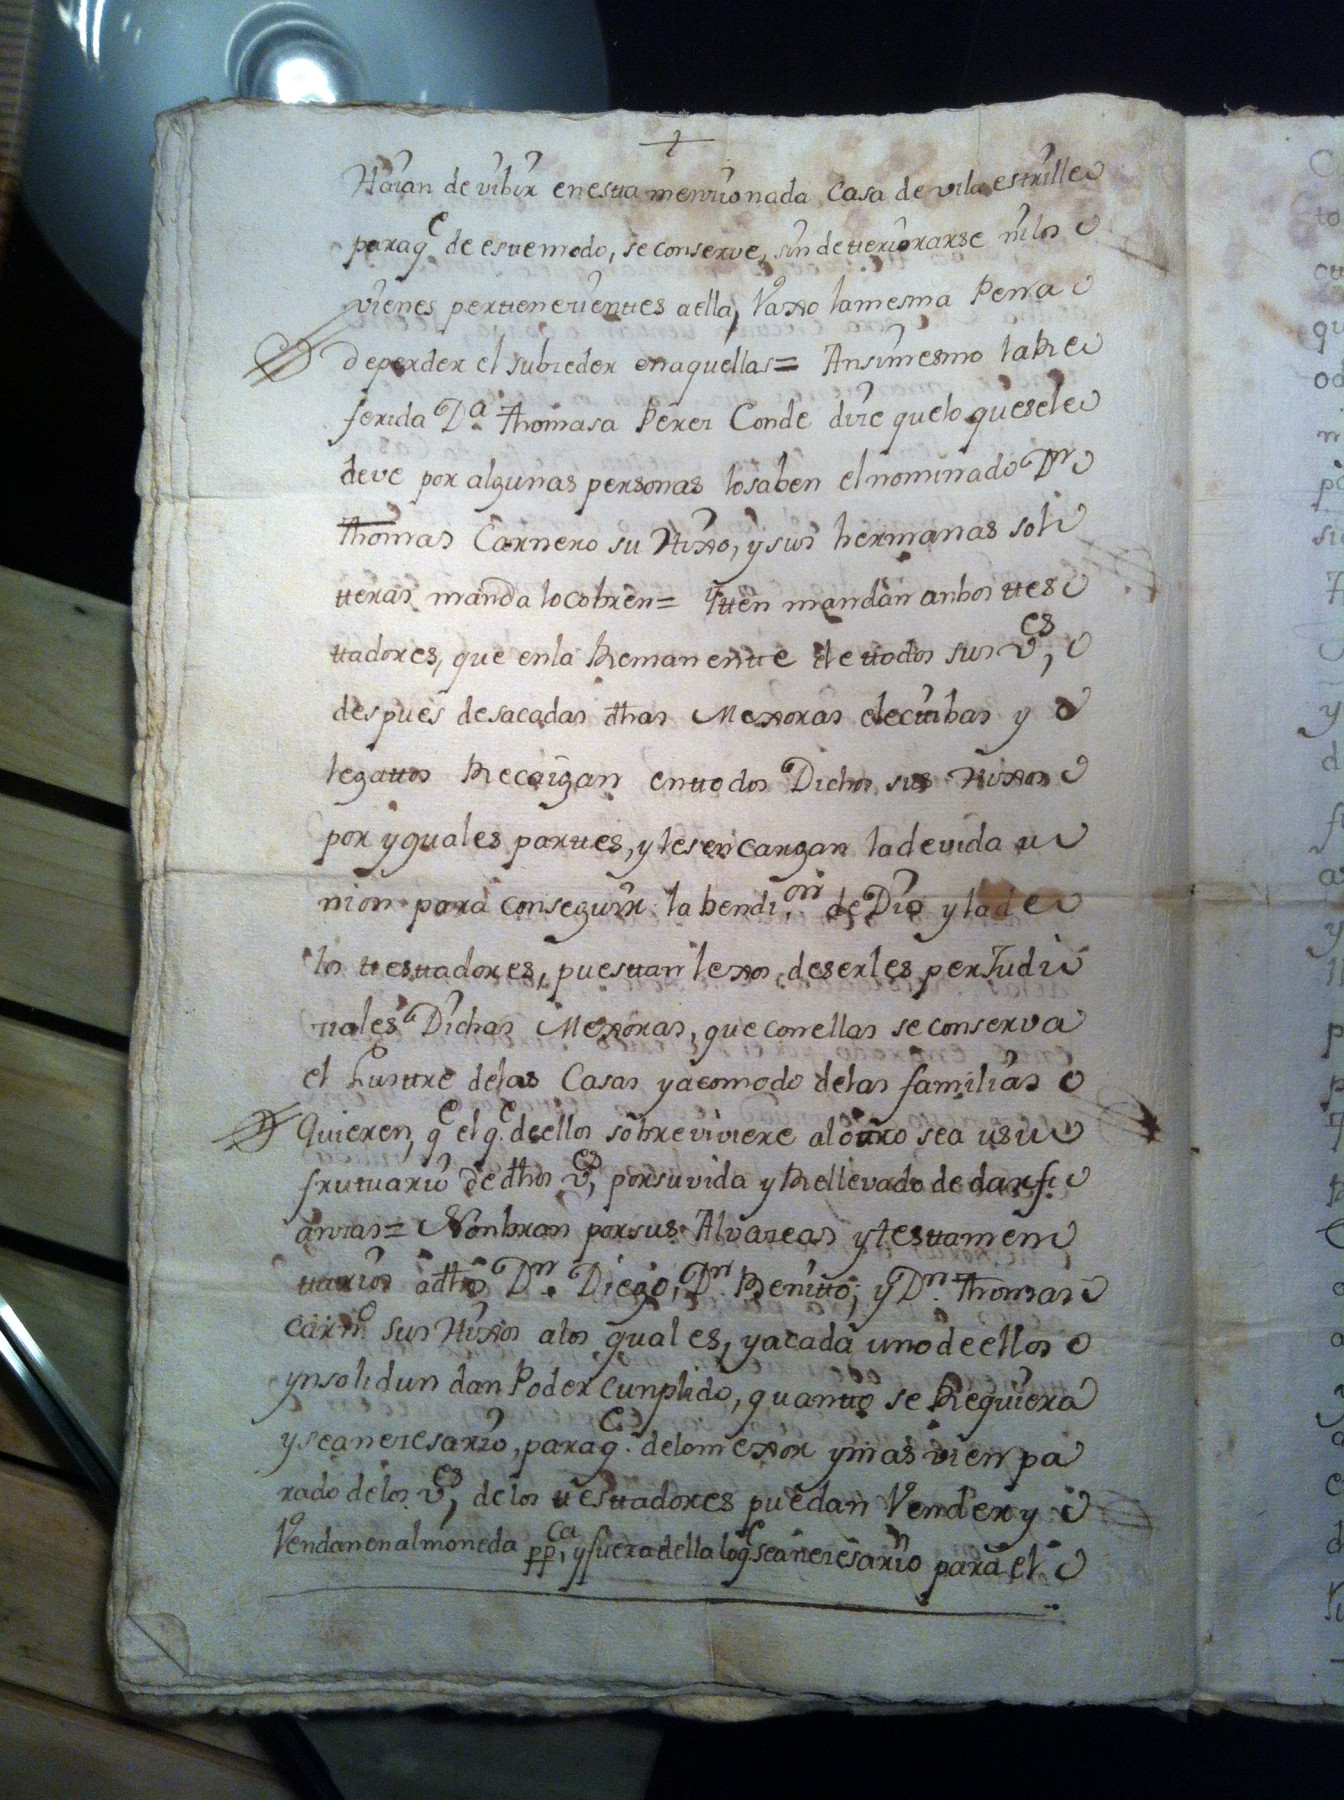 +
Haian de vibir en esta menzionada Casa de vilaestrille
paraq.e de este modo, se conserve, sin deteriorarse ni los
vienes pertenezientes a ella, Vaxo la mesma Pena
de perder el subzeder en aquellas = Ansimesmo la Re
ferida D.a Thomasa Perez Conde dize que lo que se le
deve por algunas personas lo saben el nominado D.n
Thomas Carnero su Hixo, y sus hermanas sol
teras manda lo cobren = Yten mandan anbos tes
tadores, que en la Remanente de todos sus v.es,
despues de sacadas dhas Mexoras elecutibas y
legatos Recaigan en todos Dichos sus Hixos
por yguales partes, y les encargan la devida u
nion para conseguir la bendi.on de Dios y la de
los testadores, pues tan lexos de serles perjudi
ziales Dichas Mexoras, que con ellas se conserva
el Lustre de las Casas y acomodo de las familias
Quieren, q.e el q.e de ellos sobreviviere al otro sea usu
frutuario de dhos v.es, por su vida y Rellevado de dar f
anzas = Nonbran por sus Alvazeas y testamen
tarios a dhos D.n Diego, D.n Benitto, y D.n Thomas
Carn.o sus Hixos a los quales, y a cada uno de ellos
ynsolidun dan Poder cunplido, quanto se Requiera
y sea nezesario, paraq.e de lo mexor y mas vien pa
rado de los v.es, de los testadores puedan Vender y
Vendan en almoneda pp.ca, y fuera della loq.e sea nezesario para el